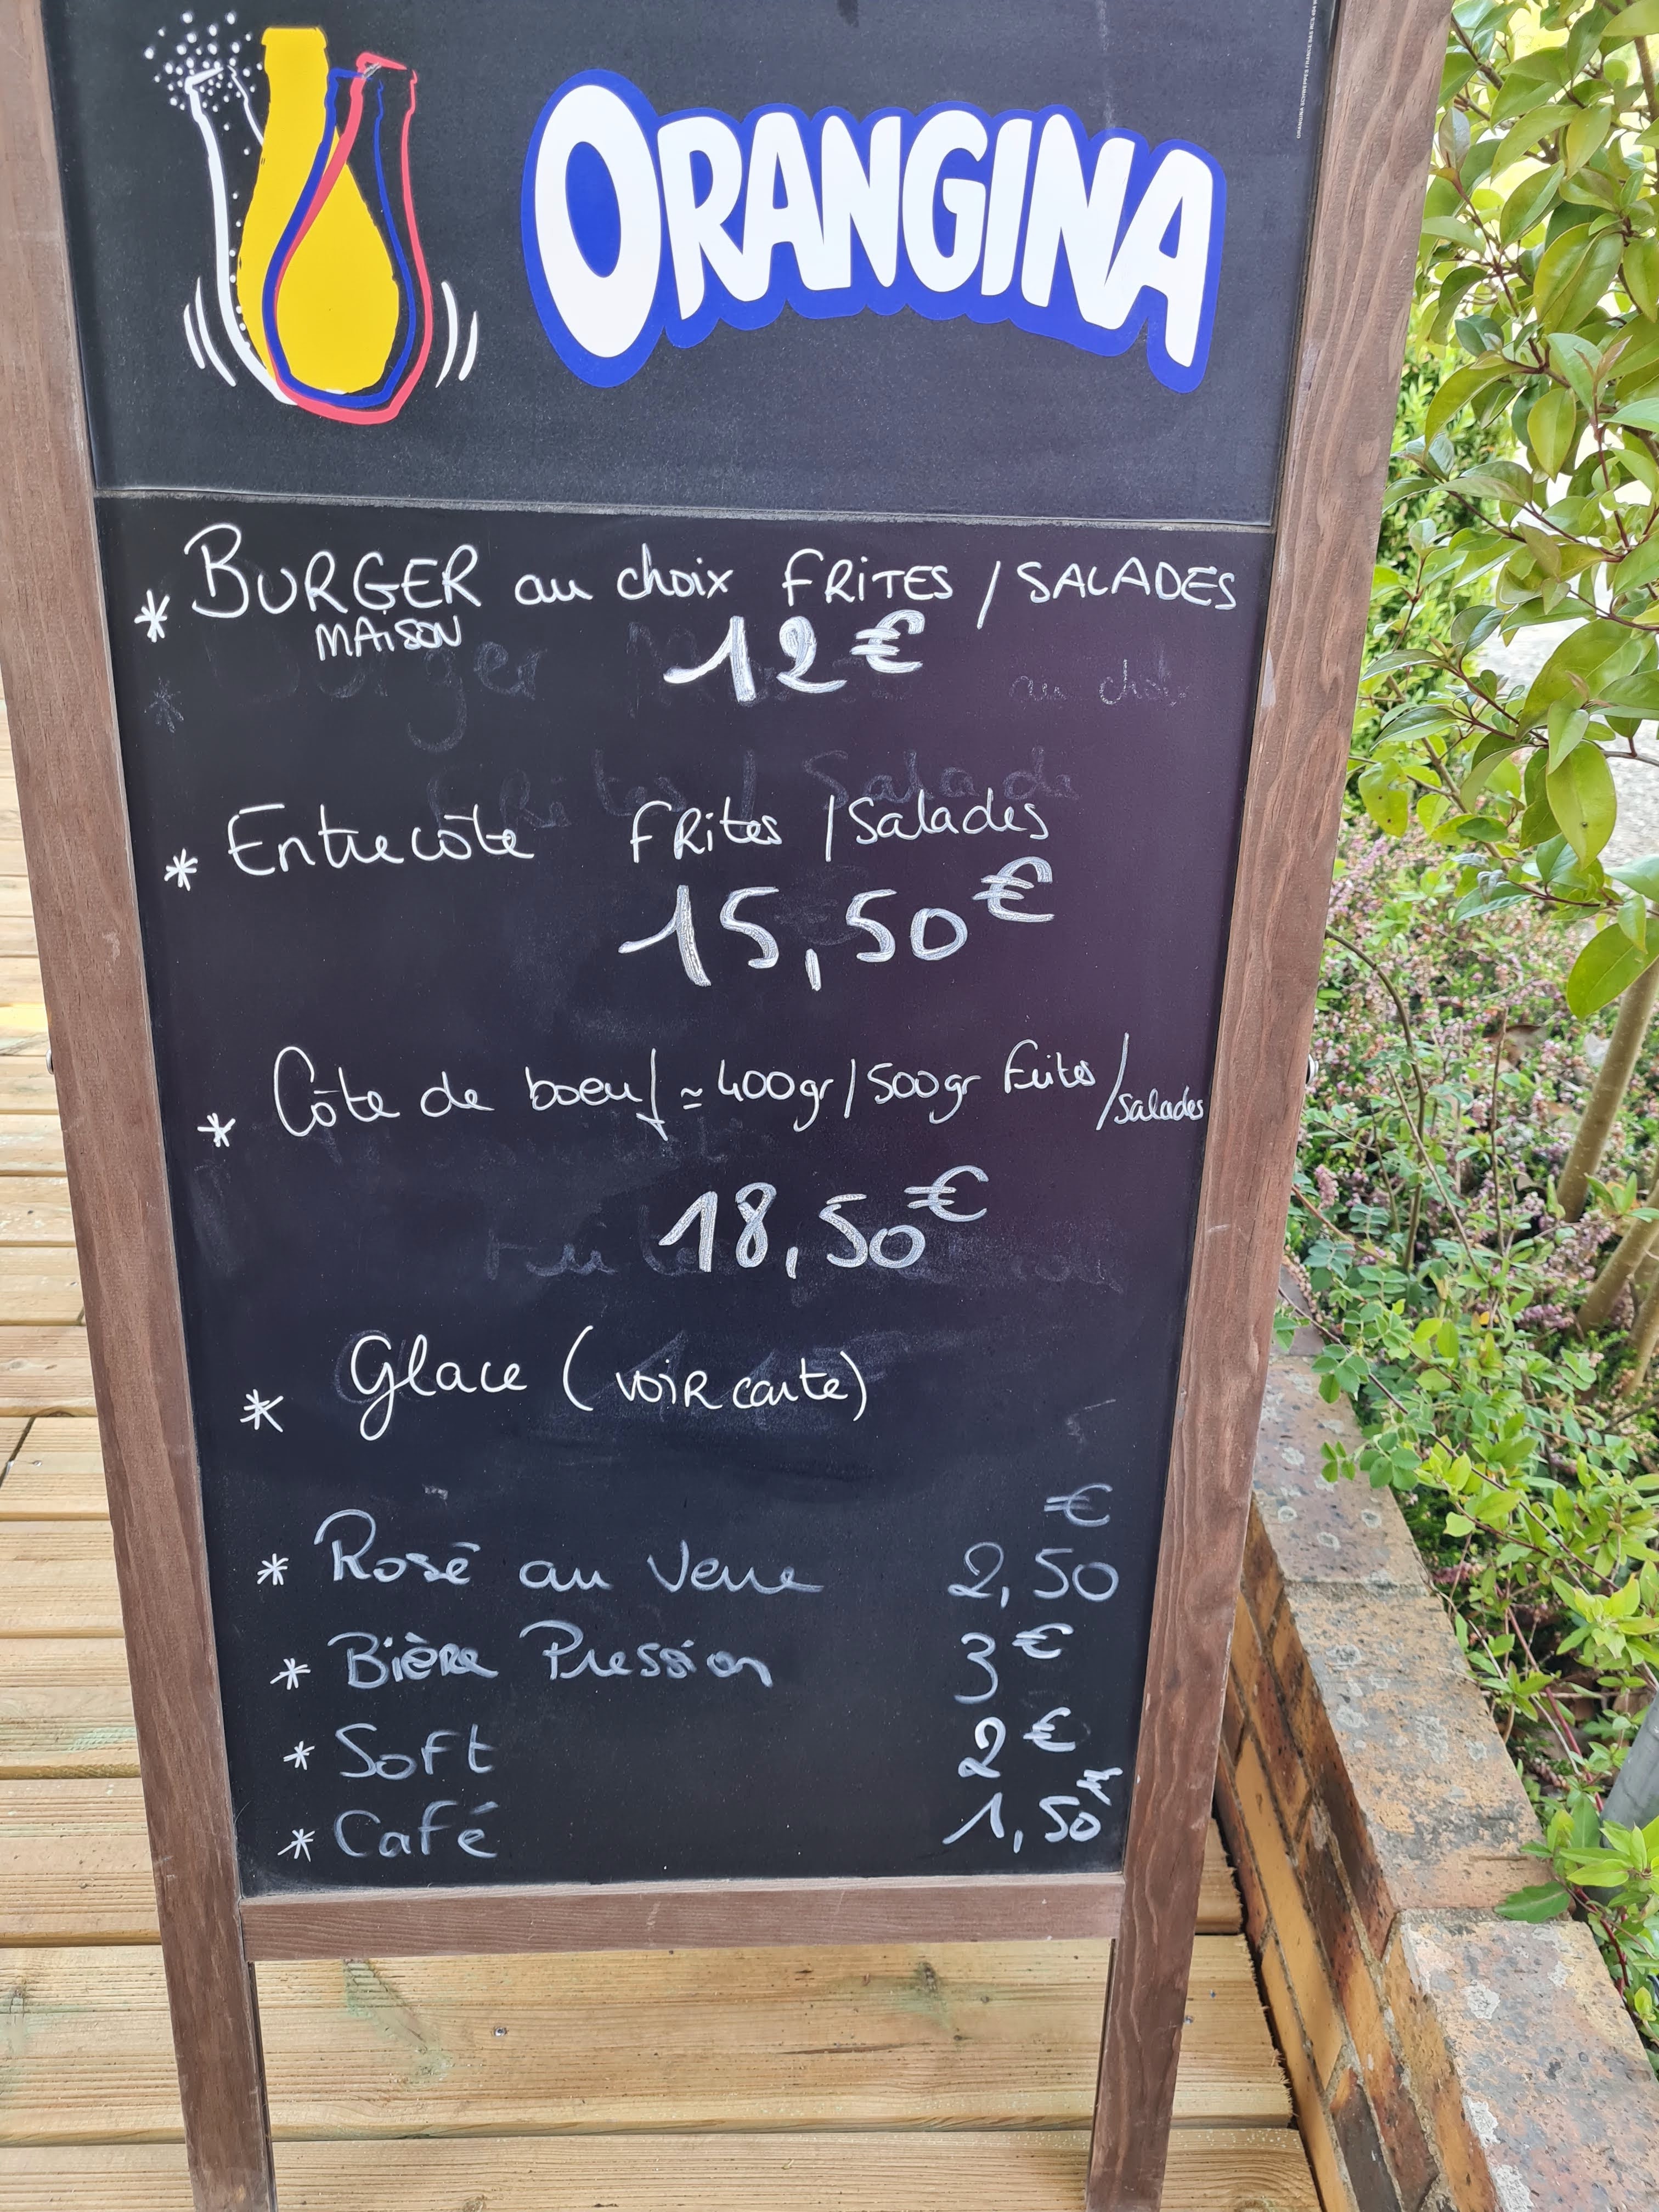 ORANGINA
* BURGER au choix FRITES / SALADES
MAISON
12€
* Entrecôte FRites / Salades
15,50€
* Côte de boeuf ≃ 400gr / 500gr Frites / salades
18,50€
* Glace (voir carte)
€
* Rosé au Verre 2,50
* Bière Pression 3€
* Soft 2€
* Café 1,50